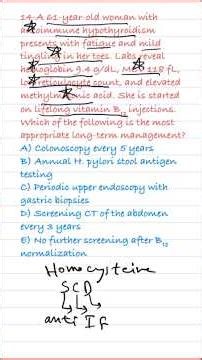 14-A 61-year-old woman with
autoimmune hypothyroidism
presents with fatigue and mild
tingling in her toes. Labs reveal
hemoglobin 9.4 g/dL, MCV 118 fL,
low reticulocyte count, and elevated
methylmalonic acid. She is started
on lifelong vitamin B₁₂ injections.
Which of the following is the
most appropriate long-term management?
A) Colonoscopy every 5 years
B) Annual H. pylori stool antigen
testing
C) Periodic upper endoscopy with
gastric biopsies
D) Screening CT of the abdomen
every 3 years
E) No further screening after B₁₂
normalization
Homocysteine
SCD
anti IF